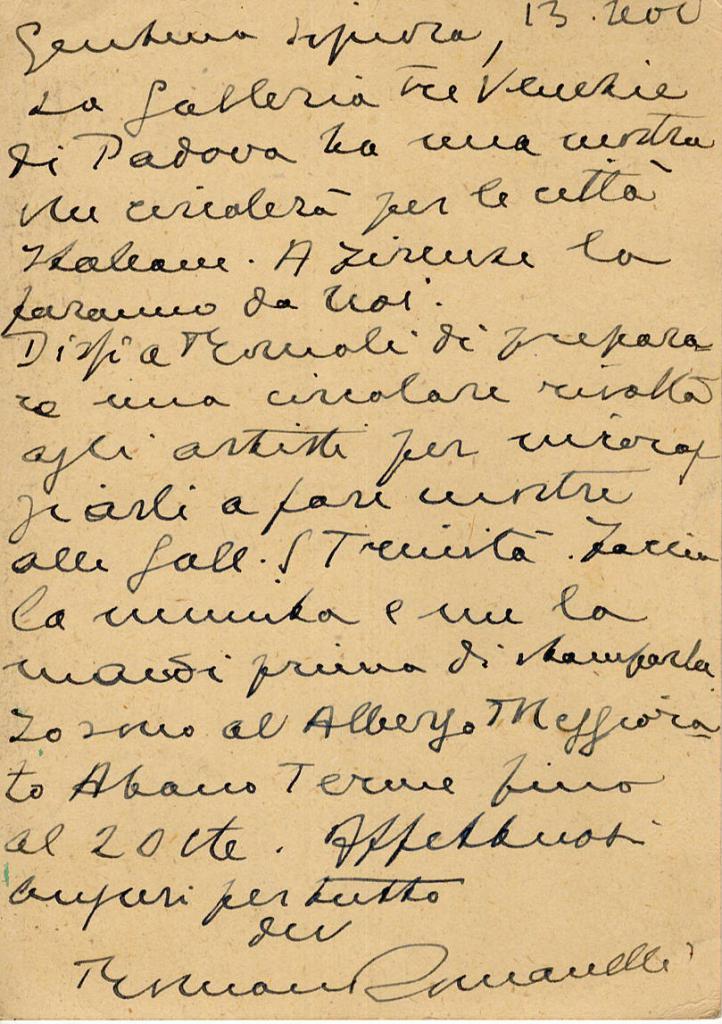 Gentma Signora, 13 nov
La Galleria Tre Venezie
di Padova ha una mostra
che circolerà per le città
Italiane. A Firenze la
faranno da noi.
Dissi a Romoli di prepara-
re una circolare rivolta
agli artisti per incorag
giarli a fare mostre
alla Gall. S Trinità. Faccia
la minuta e me la
mandi prima di stamparla
Io sono al Albergo Meggiora-
to Abano Terme fino
al 20 cte. Affettuosi
auguri per tutto
dev
Romano Romanelli